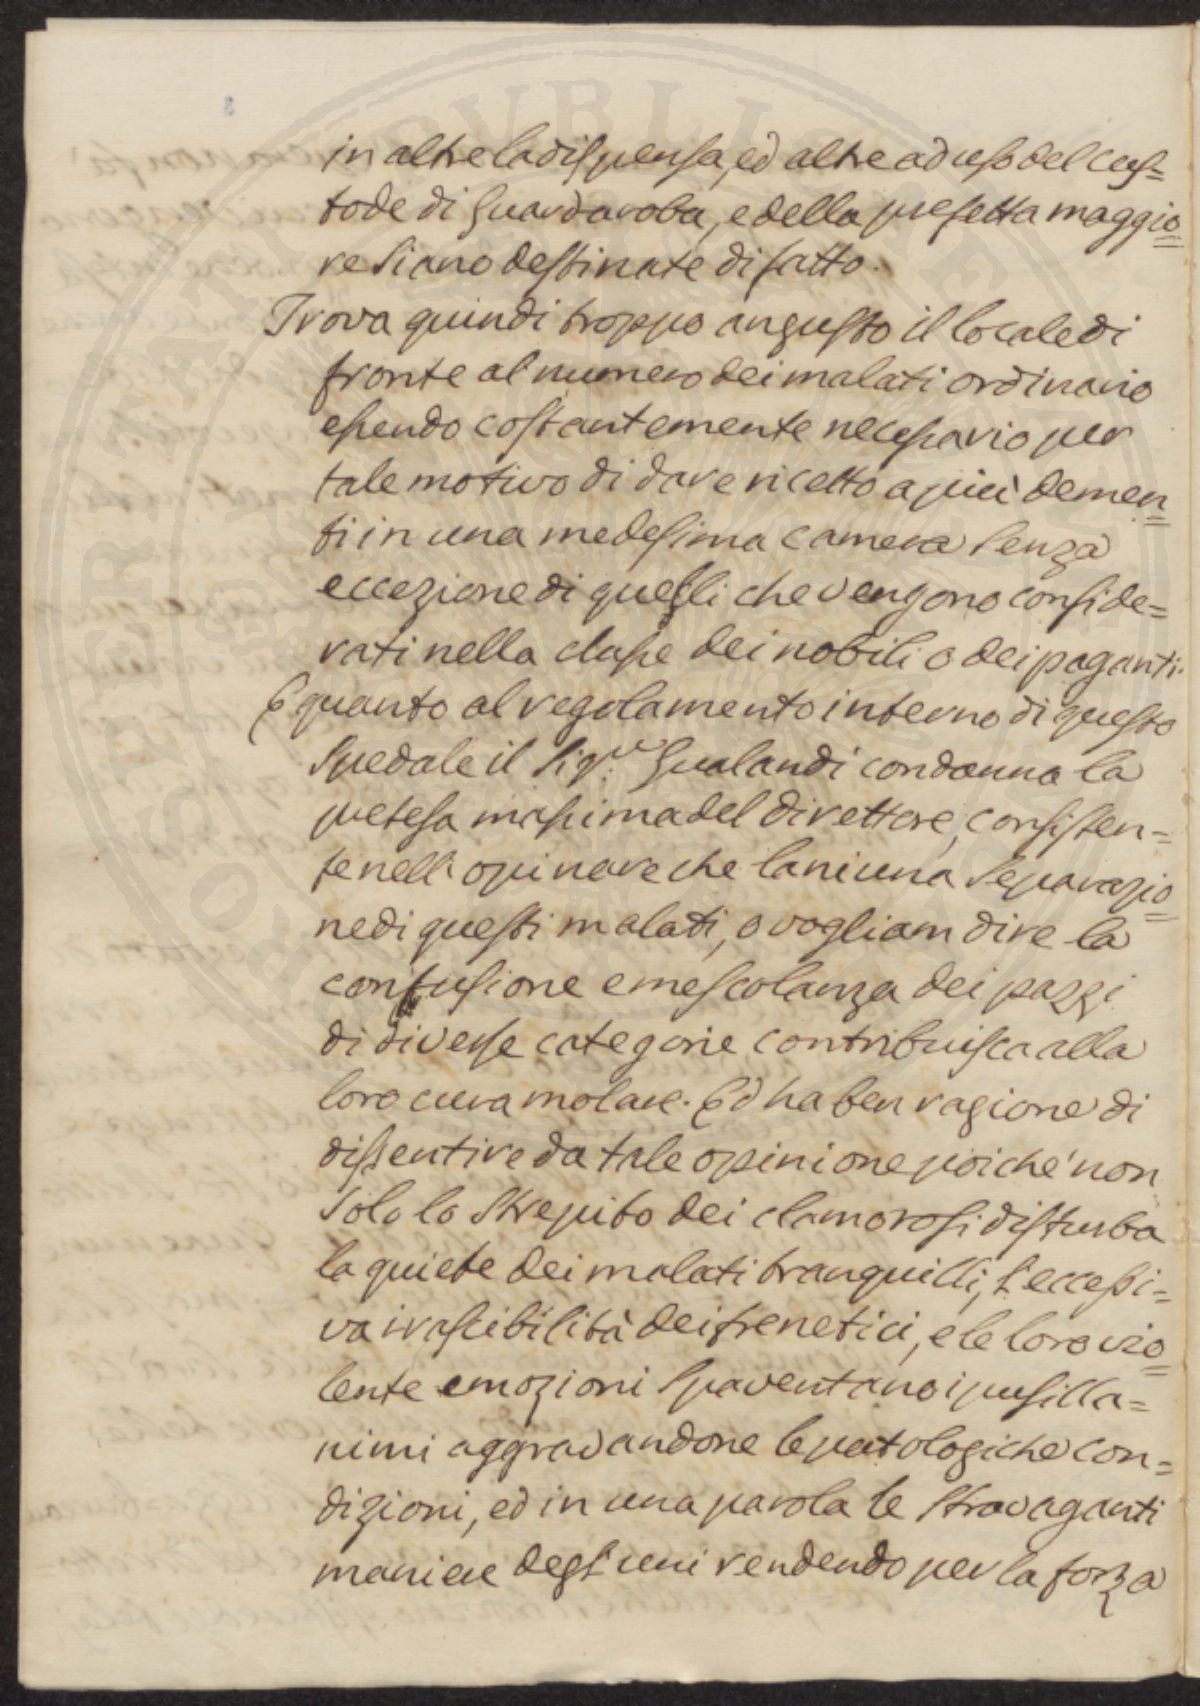 in altre la dispensa, ed altre ad uso del cus=
tode di Guardaroba, e della prefetta maggio=
re siano destinate di fatto.
Trova quindi troppo angusto il locale di
fronte al numero dei malati ordinario
essendo costantemente necessario per
tale motivo di dare ricetto a più demen=
ti in una medesima camera senza
eccezione di quegli che vengono conside=
rati nella classe dei nobili o dei paganti.
E quanto al regolamento interno di questo
Spedale il Sigr. Gualandi condanna la
pretesa massima del direttore, consisten=
te nell'opinare che la niuna separazio=
ne di questi malati, o vogliam dire la
confusione e mescolanza dei pazzi
di diverse categorie contribuisca alla
loro cura molare. Ed ha ben ragione di
dissentire da tale opinione poiché non
solo lo strepito dei clamorosi disturba
la quiete dei malati tranquilli, l'eccessi=
va irascibilità dei frenetici, e le loro vio=
lente emozioni spaventano i pusilla=
nimi aggravandone le patologiche con=
dizioni, ed in una parola le stravaganti
maniere degl'uni rendendo per la forza